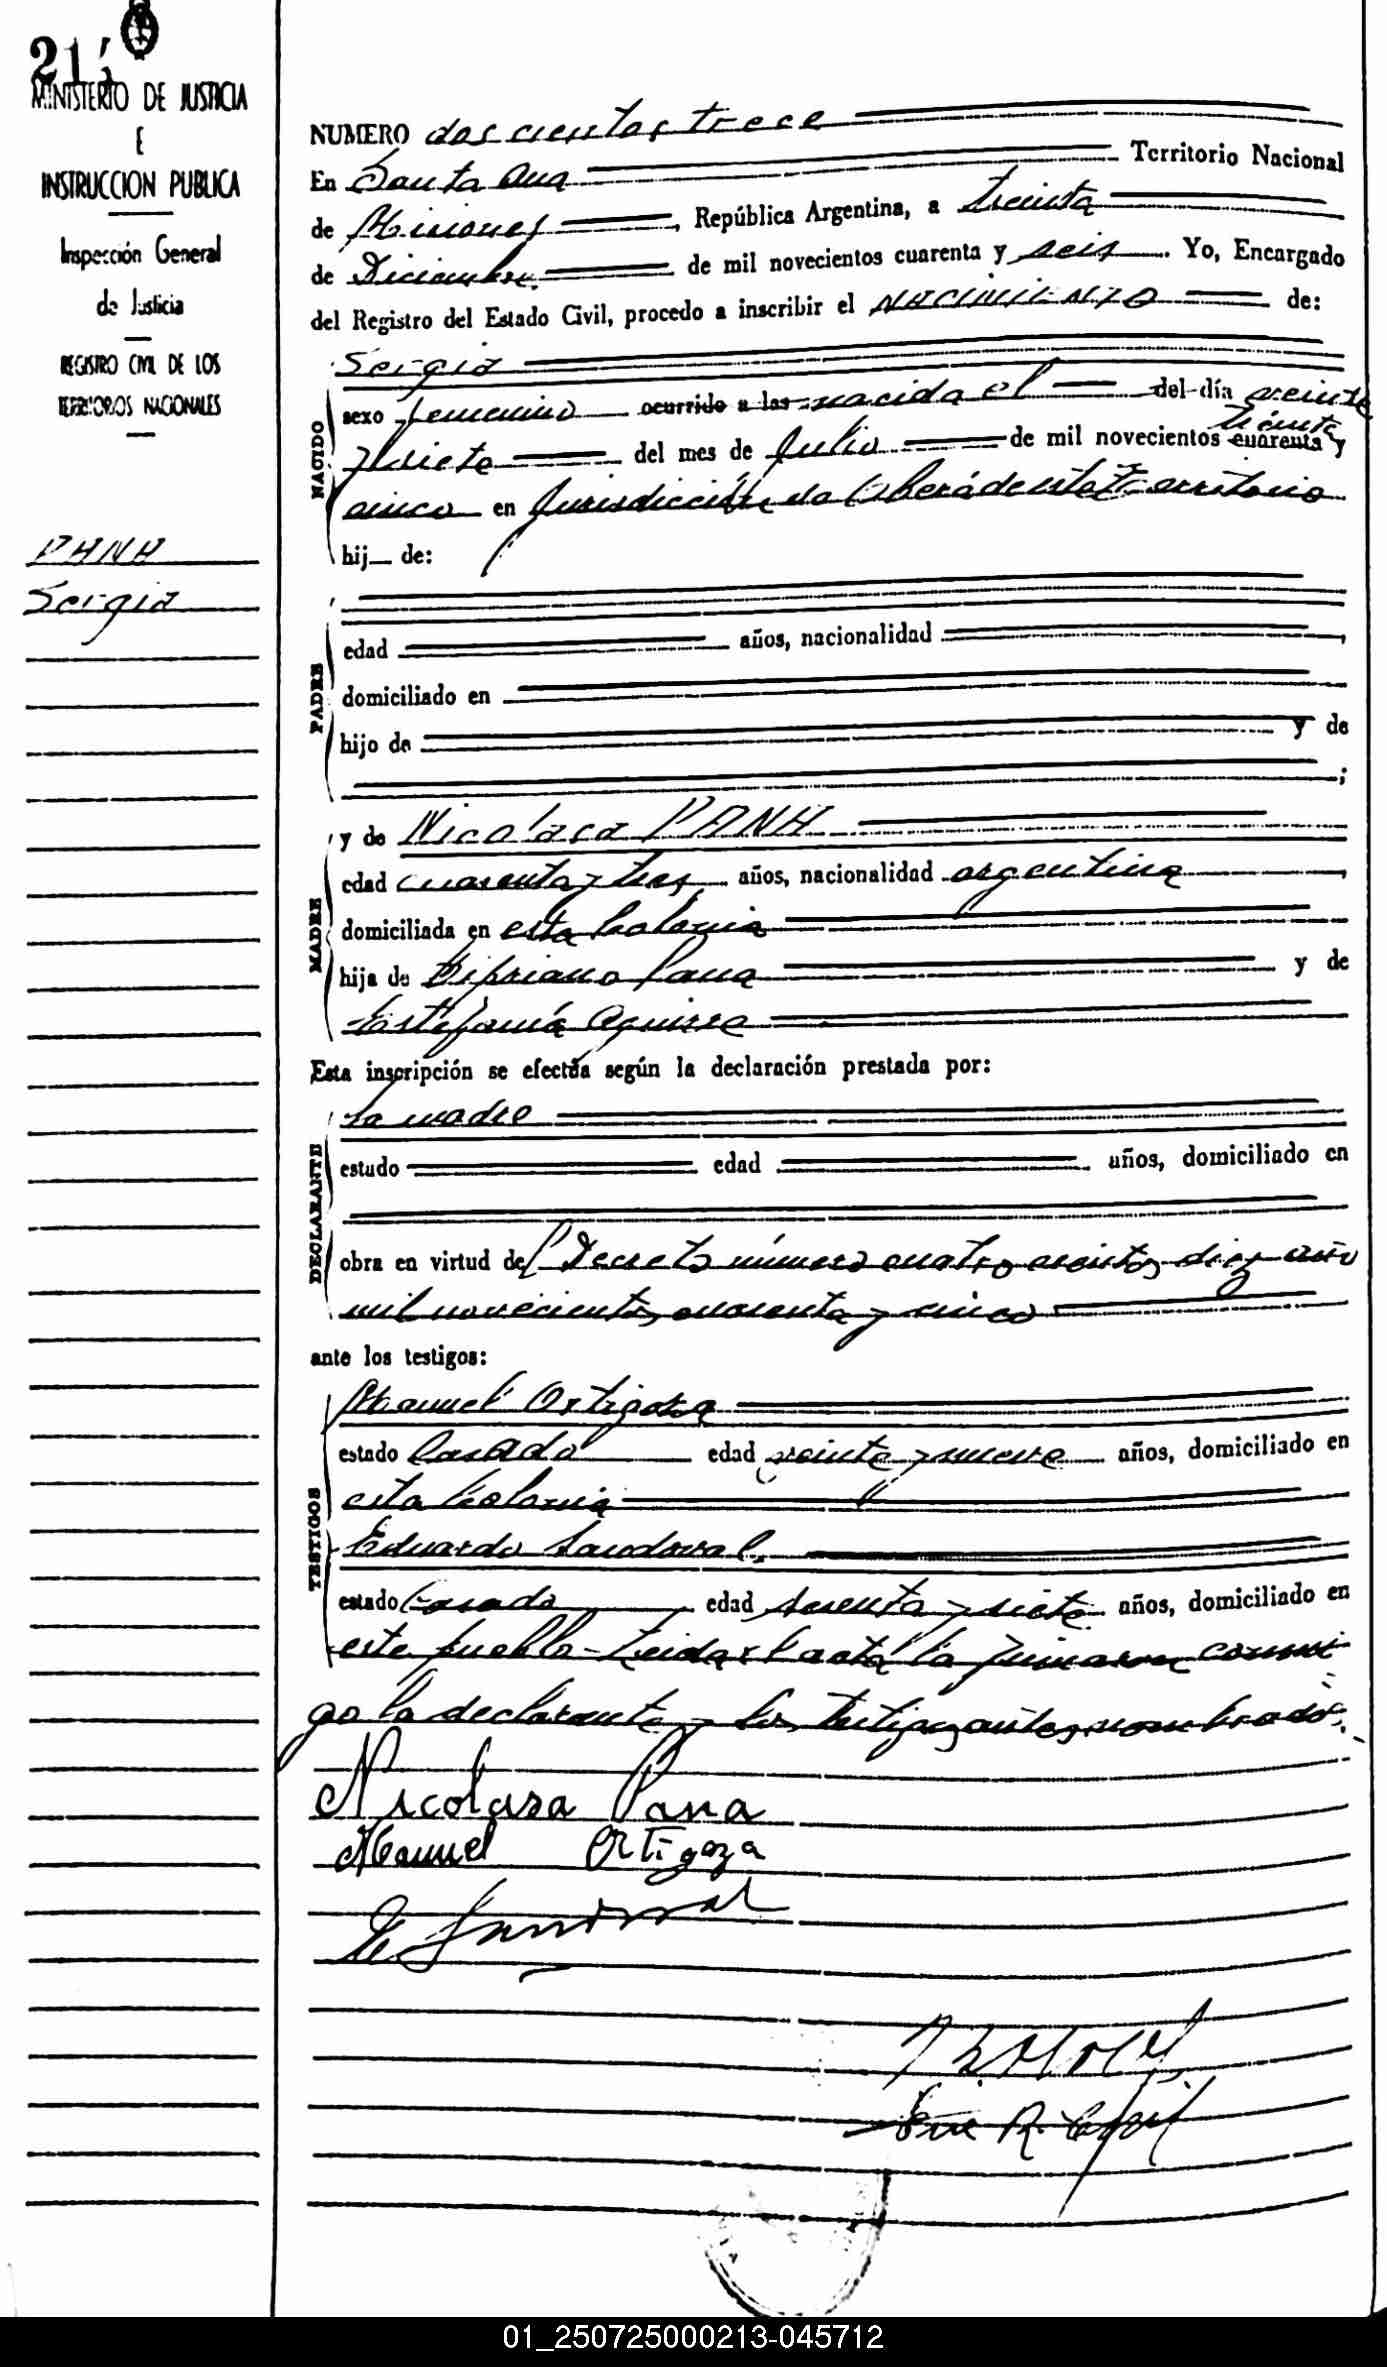 21
MINISTERIO DE JUSTICIA
E
INSTRUCCION PUBLICA
Inspección General
de Justicia
REGISTRO CIVIL DE LOS
TERRITORIOS NACIONALES
PANA
Sergia
NUMERO doscientos trece
En Santa Ana Territorio Nacional
de Misiones, República Argentina, a treinta
de Diciembre de mil novecientos cuarenta y seis. Yo, Encargado
del Registro del Estado Civil, procedo a inscribir el NACIMIENTO de:
NACIDO
Sergia
sexo femenino ocurrido a las nacida el del día veinte
treinta
y siete del mes de Julio de mil novecientos cuarenta y
cinco en Jurisdicción de este Territorio
hij de:
PADRE
edad años, nacionalidad ,
domiciliado en
hijo de y de
;
MADRE
y de Nicolasa PANA
edad cuarenta y tres años, nacionalidad argentina ,
domiciliada en esta Colonia
hija de Cipriano Pana y de
Estefanía Aguirre
Esta inscripción se efectúa según la declaración prestada por:
DECLARANTE
La madre
estado edad años, domiciliado en
obra en virtud del Decreto número cuatrocientos diez año
mil novecientos cuarenta y cinco
ante los testigos:
TESTIGOS
Manuel Ortigoza
estado Casado edad veinte y nueve años, domiciliado en
esta Colonia
Eduardo Sandoval
estado Casado edad sesenta y siete años, domiciliado en
este pueblo - Leida el acta la firmaron conmi
go la declarante y los testigos antes nombrados.
Nicolasa Pana
Manuel Ortigoza
E Sandoval
01_250725000213-045712